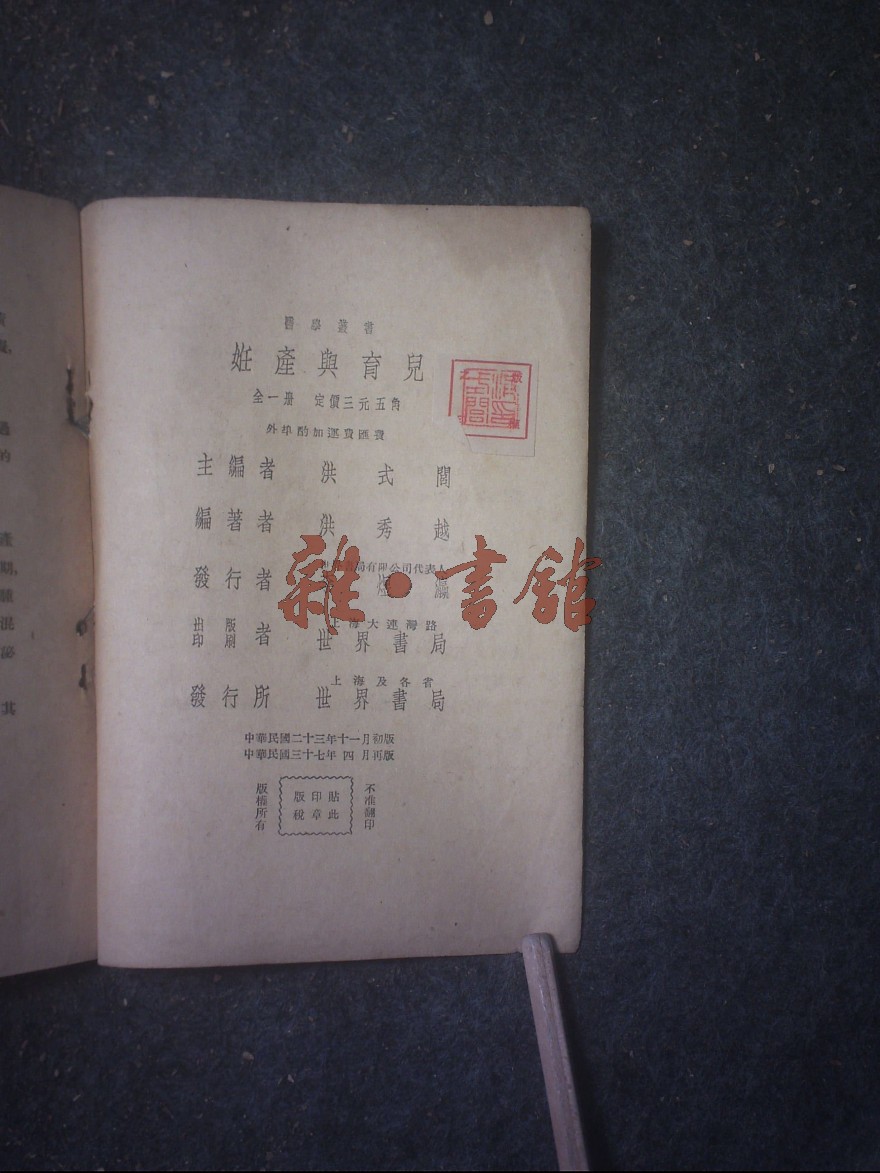 醫學叢書
妊產與育兒
全一册 定價三元五角
外埠酌加運費匯費
主編者 洪式閭
編著者 洪秀越
發行者 有限公司代表人
出版印刷者 上海大連灣路
世界書局
發行所 上海及各省
世界書局
中華民國二十三年十一月初版
中華民國三十七年四月再版
版權所有
版印貼
稅章此
不准翻印
雜·書館
產
期,
混
的
其